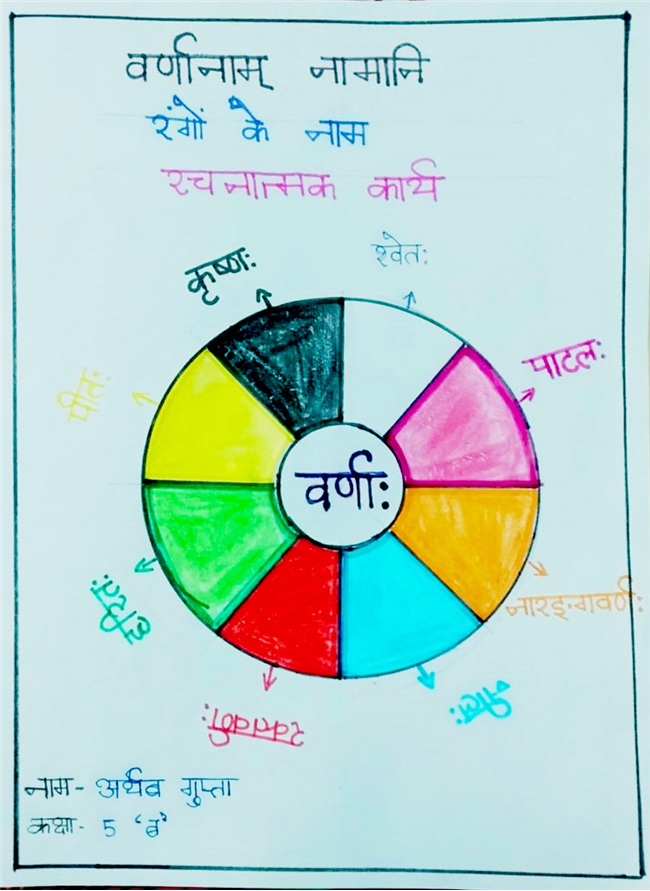 वर्णानाम् नामानि
रंगों के नाम
रचनात्मक कार्य
कृष्णः
श्वेतः
पाटलः
पीतः
वर्णाः
नारङ्गवर्णः
हरितः
नीलः
रक्तवर्णः
नाम- अर्थव गुप्ता
कक्षा- 5 'ब'